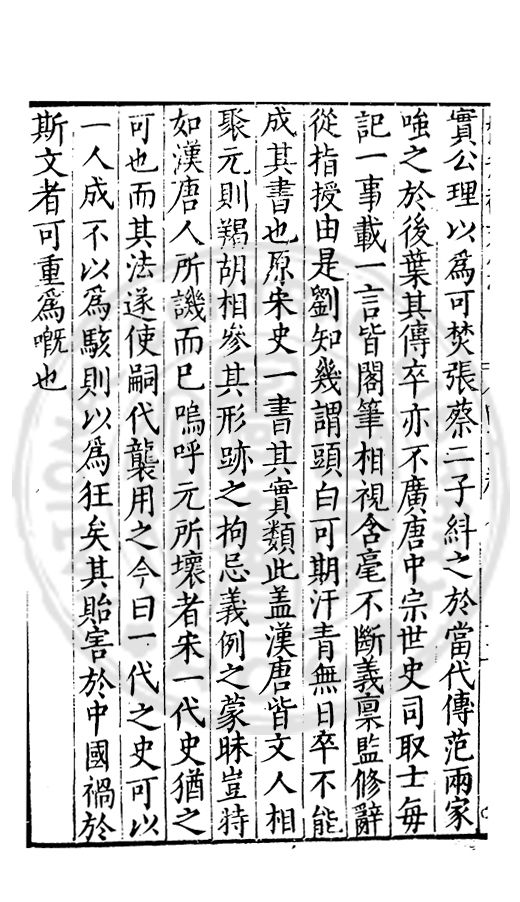 實公理以爲可焚張蔡二子糾之於當代傳范兩家
嗤之於後葉其傳卒亦不廣唐中宗世史司取士每
記一事載一言皆閣筆相視含毫不斷義稟監修辭
從指授由是劉知幾謂頭白可期汗青無日卒不能
成其書也原宋史一書其實類此盖漢唐皆文人相
聚元則羯胡相參其形跡之拘忌義例之蒙昧豈特
如漢唐人所譏而已嗚呼元所壞者宋一代史猶之
可也而其法遂使嗣代襲用之今日一代之史可以
一人成不以爲駭則以爲狂矣其貽害於中國禍於
斯文者可重爲嘅也